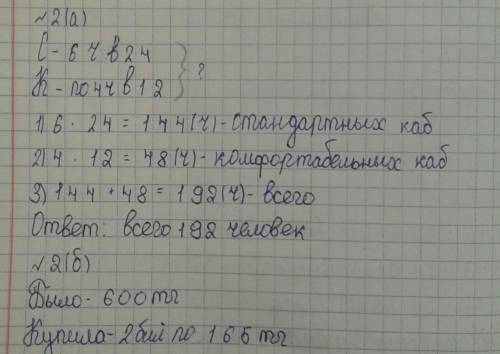 №2(а)
С - 6 ч в 24
К - по 4 ч в 12 } ?
1) 6 · 24 = 144(ч) - стандартных каб
2) 4 · 12 = 48(ч) - комфортабельных каб
3) 144 + 48 = 192(ч) - всего
Ответ: всего 192 человек
№2(б)
Было - 600тг
Купила - 2 бил по 165 тг